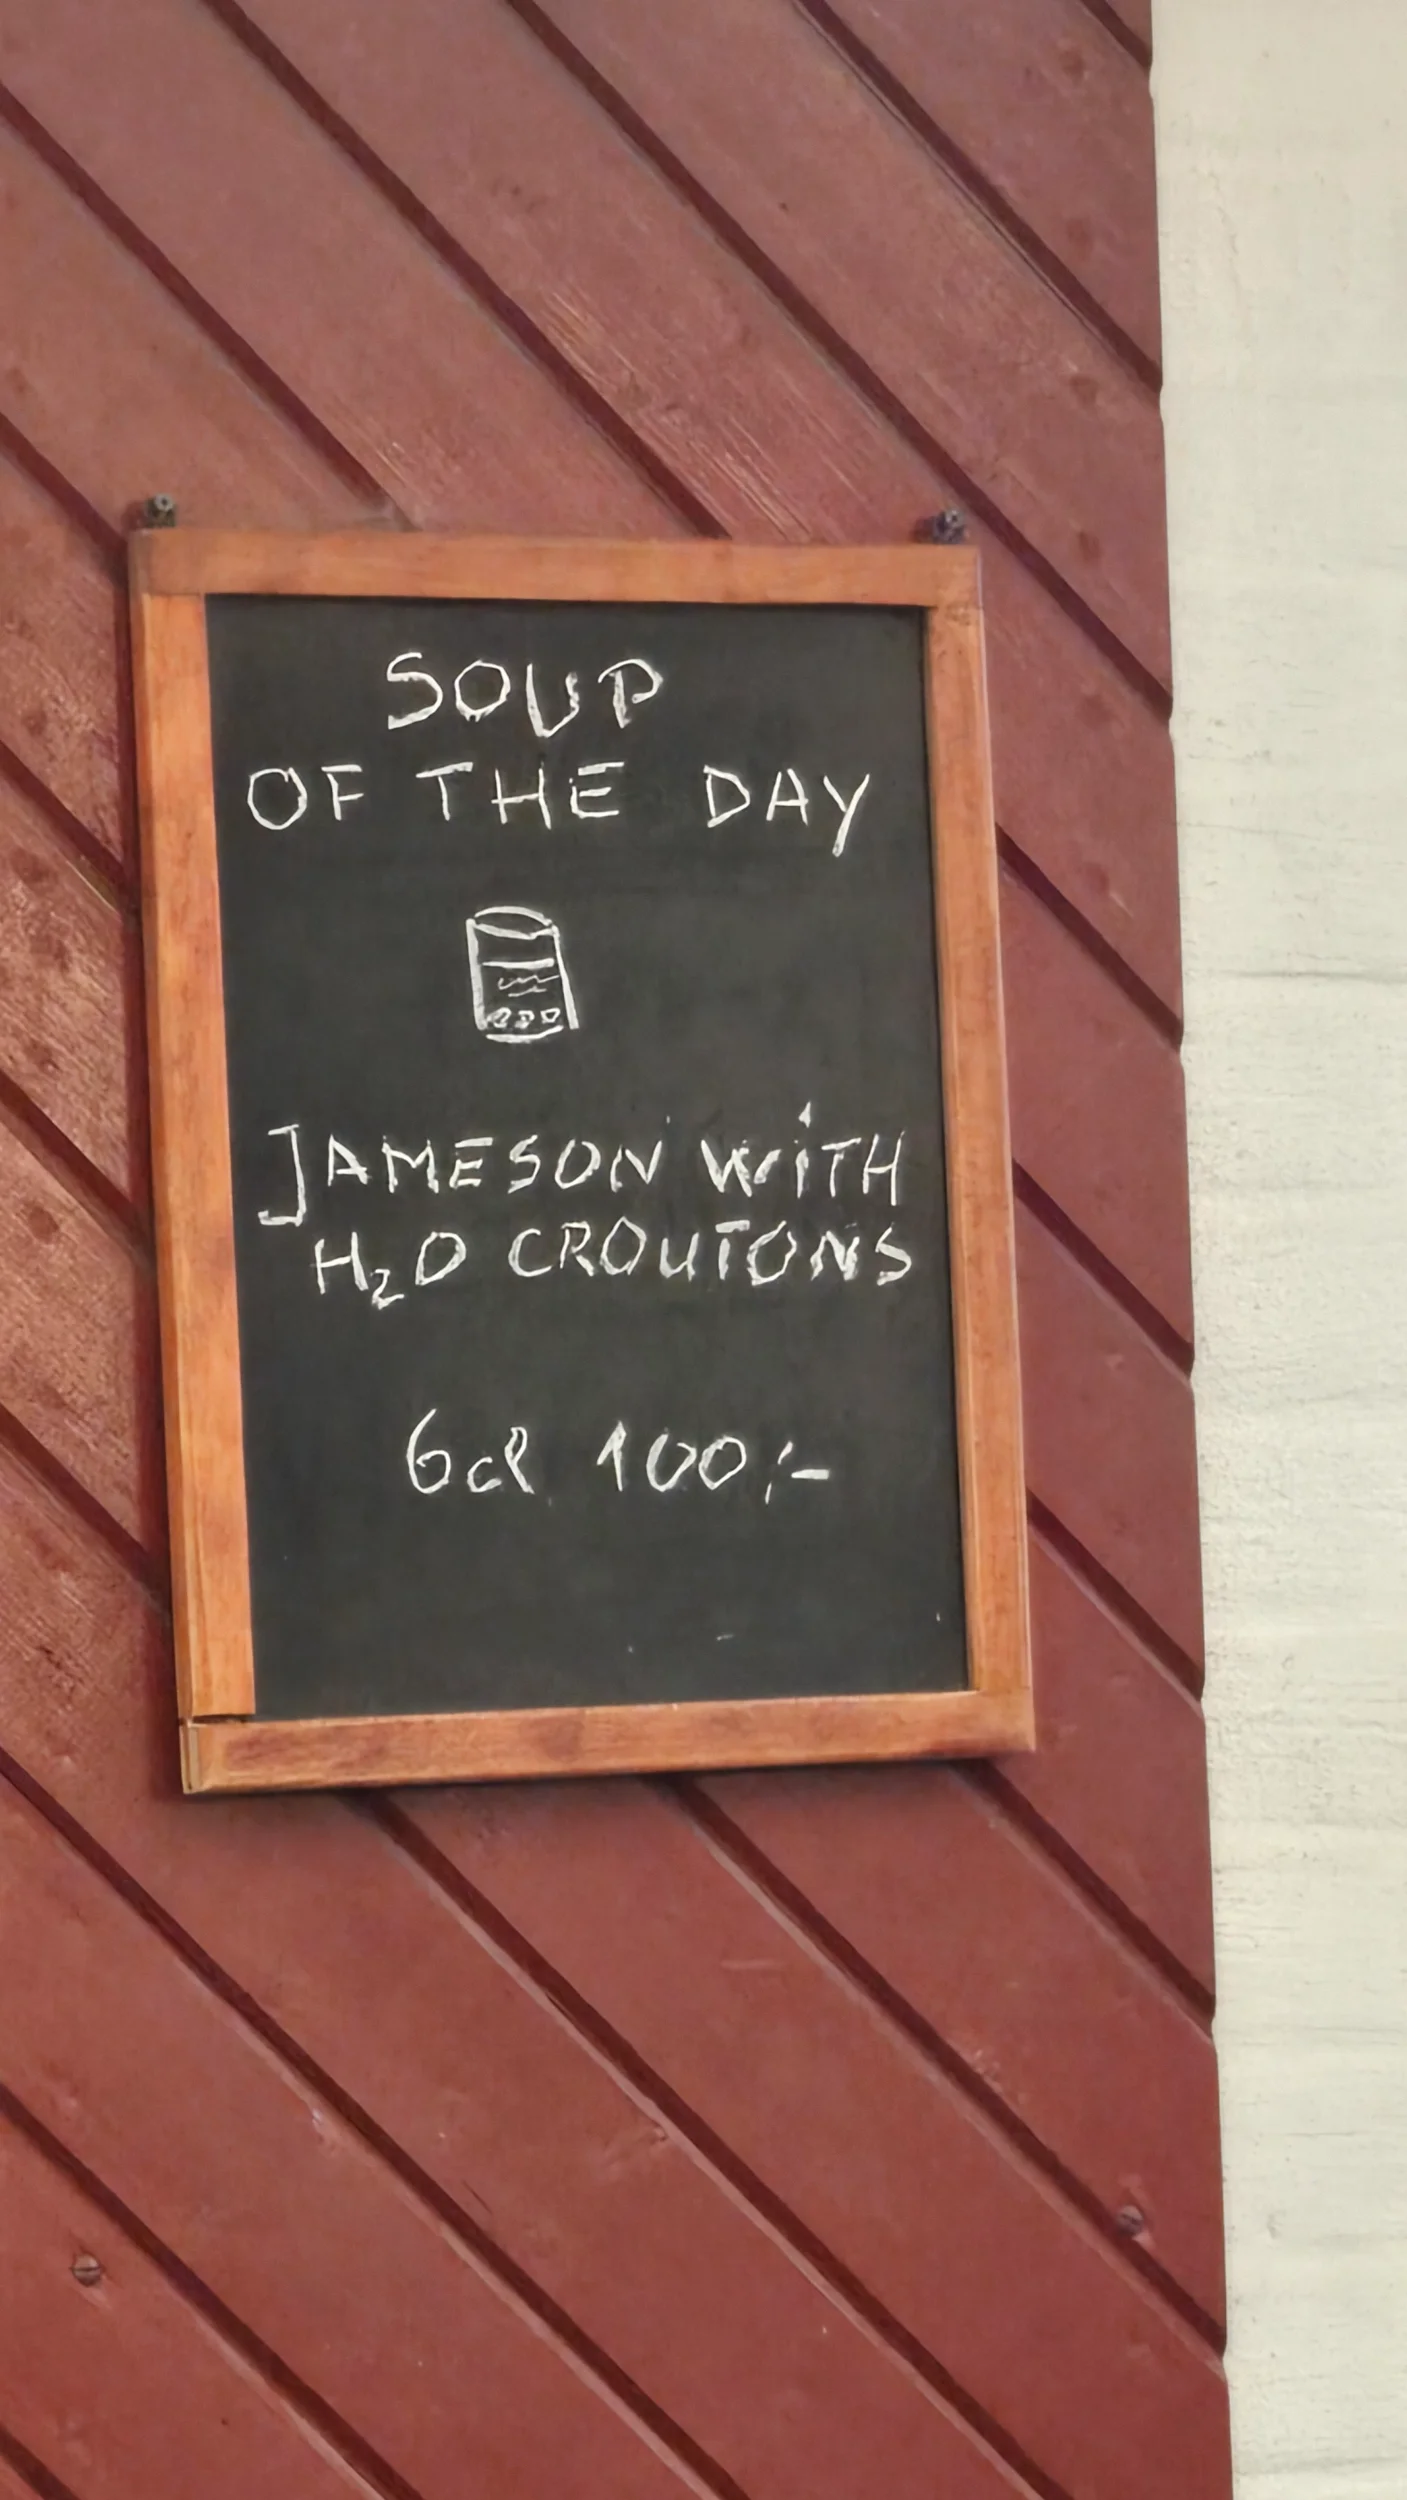 SOUP
OF THE DAY
JAMESON WITH
H₂O CROUTONS
6cl 100,-